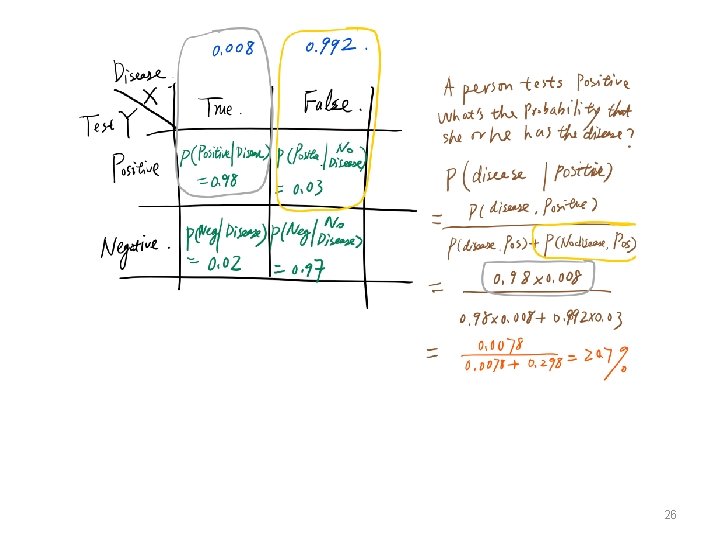 0.008 0.992.
Disease X
Test Y
True. False.
Positive
P(Positive/Disease) = 0.98
P(Positie/No Disease) = 0.03
Negative.
P(Neg/Disease) = 0.02
P(Neg/No Disease) = 0.97
A person tests Positive
What's the Probability that
she or he has the disease?
P(disease | Positive)
= P(disease, Positive)
P(disease, Pos) + P(No disease, Pos)
= 0.98x0.008
0.98x0.008 + 0.992x0.03
= 0.0078
0.0078 + 0.298 = 20.7%
26